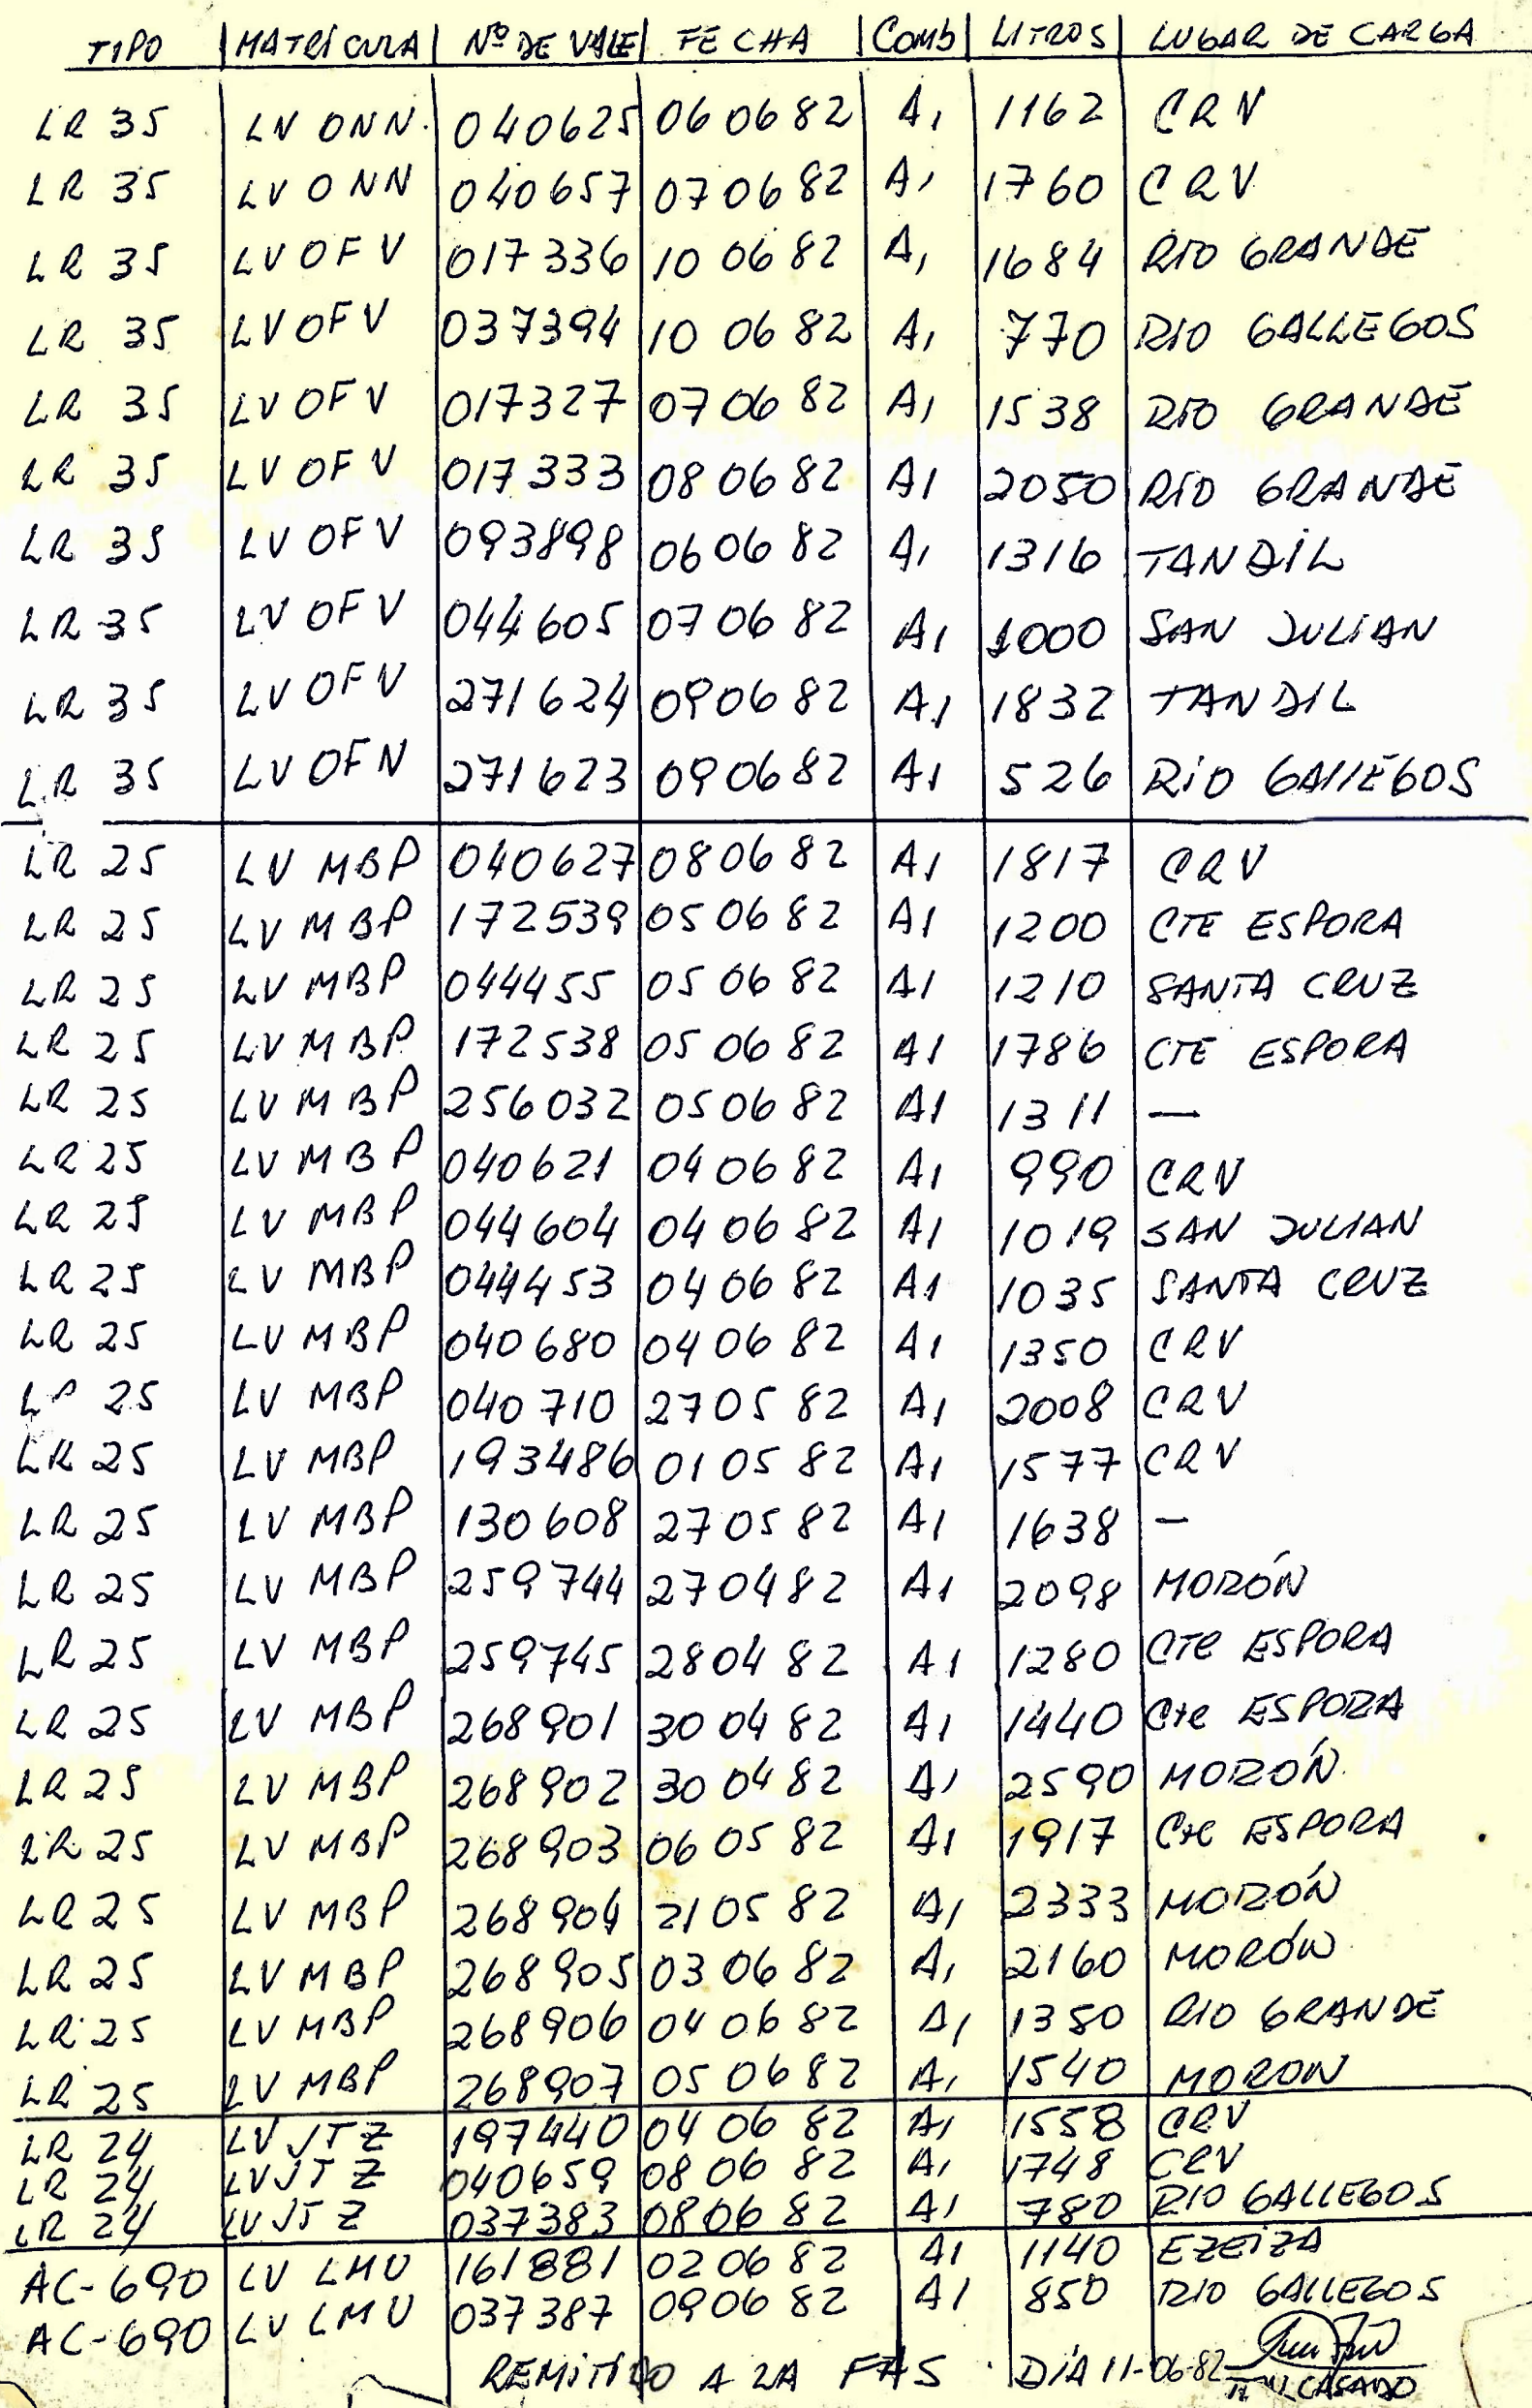 TIPO | MATRÍCULA | Nº DE VALE | FECHA | Comb | LITROS | LUGAR DE CARGA
LR 35 LV ONN. 040625 060682 A1 1162 CRV
LR 35 LV ONN 040657 070682 A1 1760 CRV
LR 35 LV OFV 017336 100682 A1 1684 RIO GRANDE
LR 35 LV OFV 037394 100682 A1 770 RIO GALLEGOS
LR 35 LV OFV 017327 070682 A1 1538 RIO GRANDE
LR 35 LV OFV 017333 080682 A1 2050 RIO GRANDE
LR 35 LV OFV 093898 060682 A1 1316 TANDIL
LR 35 LV OFV 044605 070682 A1 1000 SAN JULIAN
LR 35 LV OFV 271624 090682 A1 1832 TANDIL
LR 35 LV OFN 271623 090682 A1 526 RIO GALLEGOS
LR 25 LV MBP 040627 080682 A1 1817 CRV
LR 25 LV MBP 172539 050682 A1 1200 CTE ESPORA
LR 25 LV MBP 044455 050682 A1 1210 SANTA CRUZ
LR 25 LV MBP 172538 050682 A1 1786 CTE ESPORA
LR 25 LV MBP 256032 050682 A1 1311 —
LR 25 LV MBP 040621 040682 A1 990 CRV
LR 25 LV MBP 044604 040682 A1 1019 SAN JULIAN
LR 25 LV MBP 044453 040682 A1 1035 SANTA CRUZ
LR 25 LV MBP 040680 040682 A1 1350 CRV
LR 25 LV MBP 040710 270582 A1 2008 CRV
LR 25 LV MBP 193486 010582 A1 1577 CRV
LR 25 LV MBP 130608 270582 A1 1638 —
LR 25 LV MBP 259744 270482 A1 2098 MORÓN
LR 25 LV MBP 259745 280482 A1 1280 CTE ESPORA
LR 25 LV MBP 268901 300482 A1 1440 Cte ESPORA
LR 25 LV MBP 268902 300482 A1 2590 MORÓN
LR 25 LV MBP 268903 060582 A1 1917 Cte ESPORA
LR 25 LV MBP 268904 210582 A1 2333 MORÓN
LR 25 LV MBP 268905 030682 A1 2160 MORÓN
LR 25 LV MBP 268906 040682 A1 1350 RIO GRANDE
LR 25 LV MBP 268907 050682 A1 1540 MORON
LR 24 LV JTZ 197440 040682 A1 1558 CRV
LR 24 LV JTZ 040659 080682 A1 1748 CRV
LR 24 LV JTZ 037383 080682 A1 780 RIO GALLEGOS
AC-690 LV LMU 161881 020682 A1 1140 EZEIZA
AC-690 LV LMU 037387 090682 A1 850 RIO GALLEGOS
REMITIDO A LA FAS. DÍA 11-06-82
CASADO